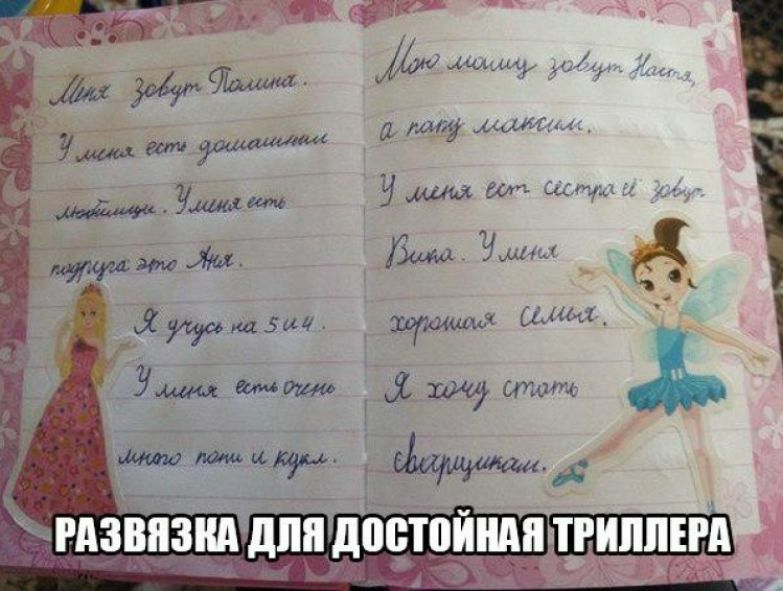 Меня зовут Полина.
У меня есть домашнии
любимици. У меня есть
подруга это Аня.
Я учусь на 5 и 4.
У меня есть очень
много пони и кукл.
Мою мамму зовут Настя,
а папу максим.
У меня ест сестра её зовут
Вика. У меня
хорошая семья.
Я хочу стать
сварщикам.
РАЗВЯЗКА ДЛЯ ДОСТОЙНАЯ ТРИЛЛЕРА